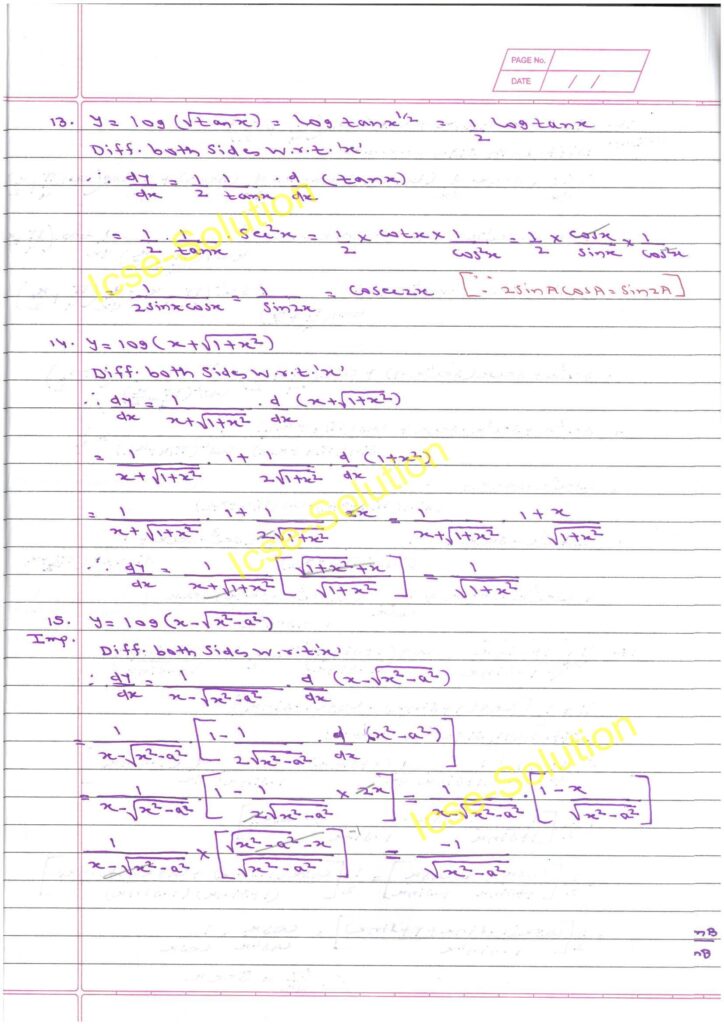 PAGE No.
DATE / /
13. y = log(√tanx) = log tanx^1/2 = 1/2 log tanx
Diff. both sides w.r.t. 'x'
∴ dy/dx = 1/2 · 1/tanx · d/dx (tanx)
= 1/2 · 1/tanx sec²x = 1/2 × cotx × 1/cos²x = 1/2 × cosx/sinx × 1/cos²x
= 1/2sinxcosx = 1/sin2x = cosec2x [∵ 2sinAcosA = sin2A]
14. y = log(x+√1+x²)
Diff. both sides w.r.t. 'x'
∴ dy/dx = 1/x+√1+x² · d/dx (x+√1+x²)
= 1/x+√1+x² · 1 + 1/2√1+x² · d/dx (1+x²)
= 1/x+√1+x² · 1 + 1/2√1+x² 2x = 1/x+√1+x² · 1 + x/√1+x²
∴ dy/dx = 1/x+√1+x² [√1+x² + x/√1+x²] = 1/√1+x²
15. y = log(x-√x²-a²)
Imp.
Diff. both sides w.r.t 'x'
∴ dy/dx = 1/x-√x²-a² · d/dx (x-√x²-a²)
= 1/x-√x²-a² · [1 - 1/2√x²-a² · d/dx (x²-a²)]
= 1/x-√x²-a² · [1 - 1/2√x²-a² × 2x] = 1/x-√x²-a² · [1 - x/√x²-a²]
1/x-√x²-a² × [√x²-a² - x/√x²-a²] -1 = -1/√x²-a²
nB
nB
Icse-Solution
Icse-Solution
Icse-Solution